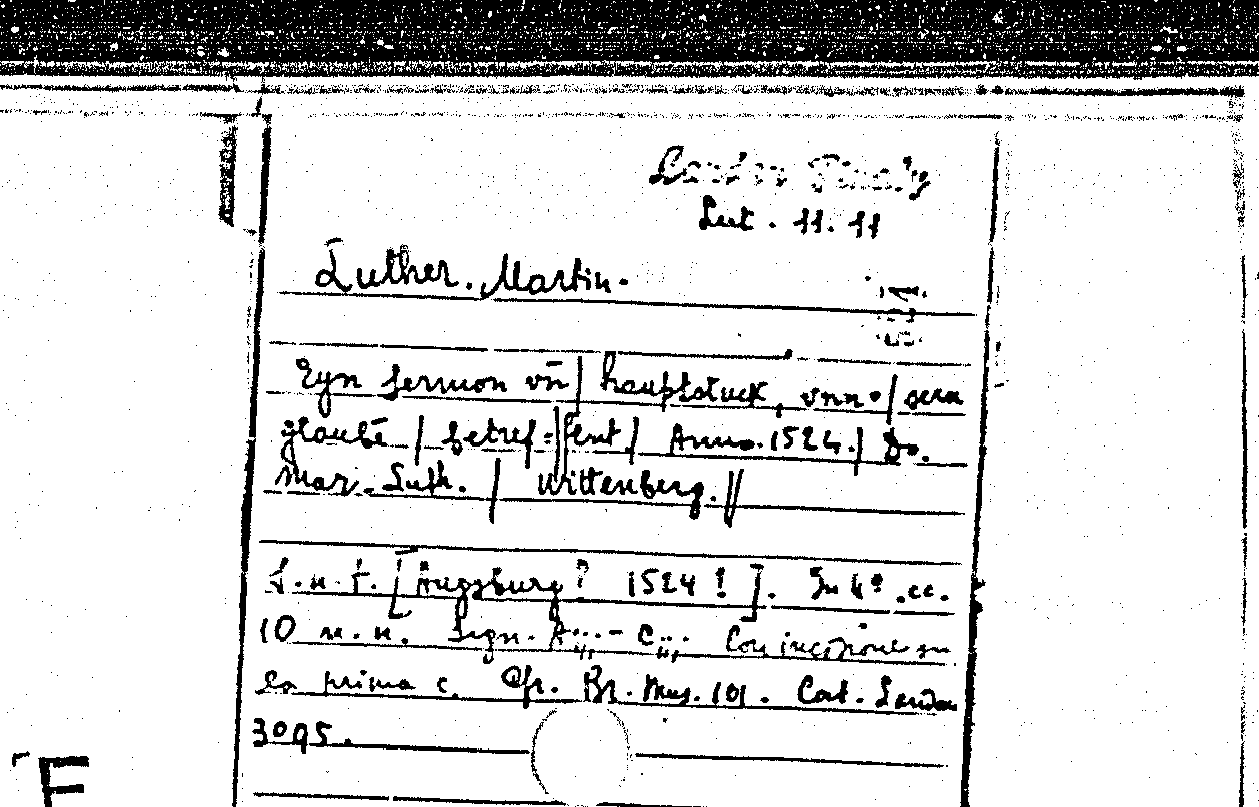 Lut. 11. 11
Luther. Martin.
Eyn sermon vn̄ | hauptstuck, vnn |
glaubē | betref= || fent | Anno. 1524. | Do.
Mar. Luth. | Wittenberg. ||
S. n. t. [Augsburg? 1524?]. In 4º. cc.
10 n. n. Sign. A - C Con incisione su
la prima c. Cfr. Br. Mus. 101. Cat. London
3095.
F